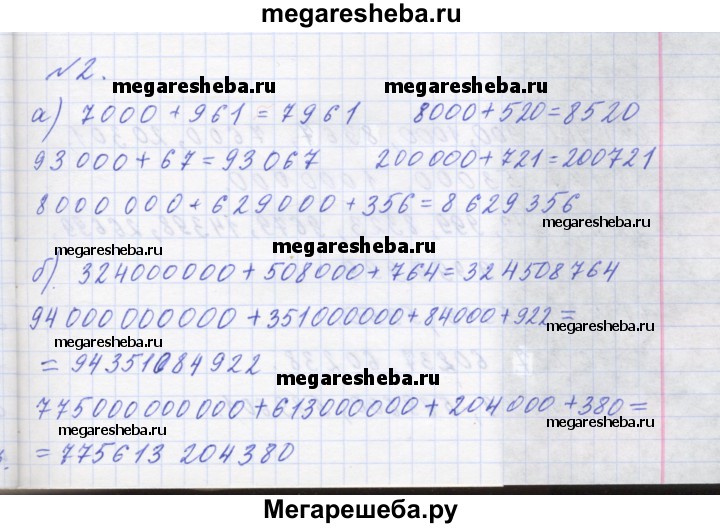 megaresheba.ru
№2.
megaresheba.ru megaresheba.ru
а) 7000 + 961 = 7961 8000 + 520 = 8520
93 000 + 67 = 93 067 200 000 + 721 = 200 721
8 000 000 + 629000 + 356 = 8 629 356
megaresheba.ru megaresheba.ru
б) 324000000 + 508000 + 764 = 324508764
94 000 000 000 + 351000000 + 84000 + 922 =
megaresheba.ru
= 94351084922
megaresheba.ru
775000000000 + 613000000 + 204 000 + 380 =
megaresheba.ru megaresheba.ru
= 775613 204380
Мегарешеба.ру